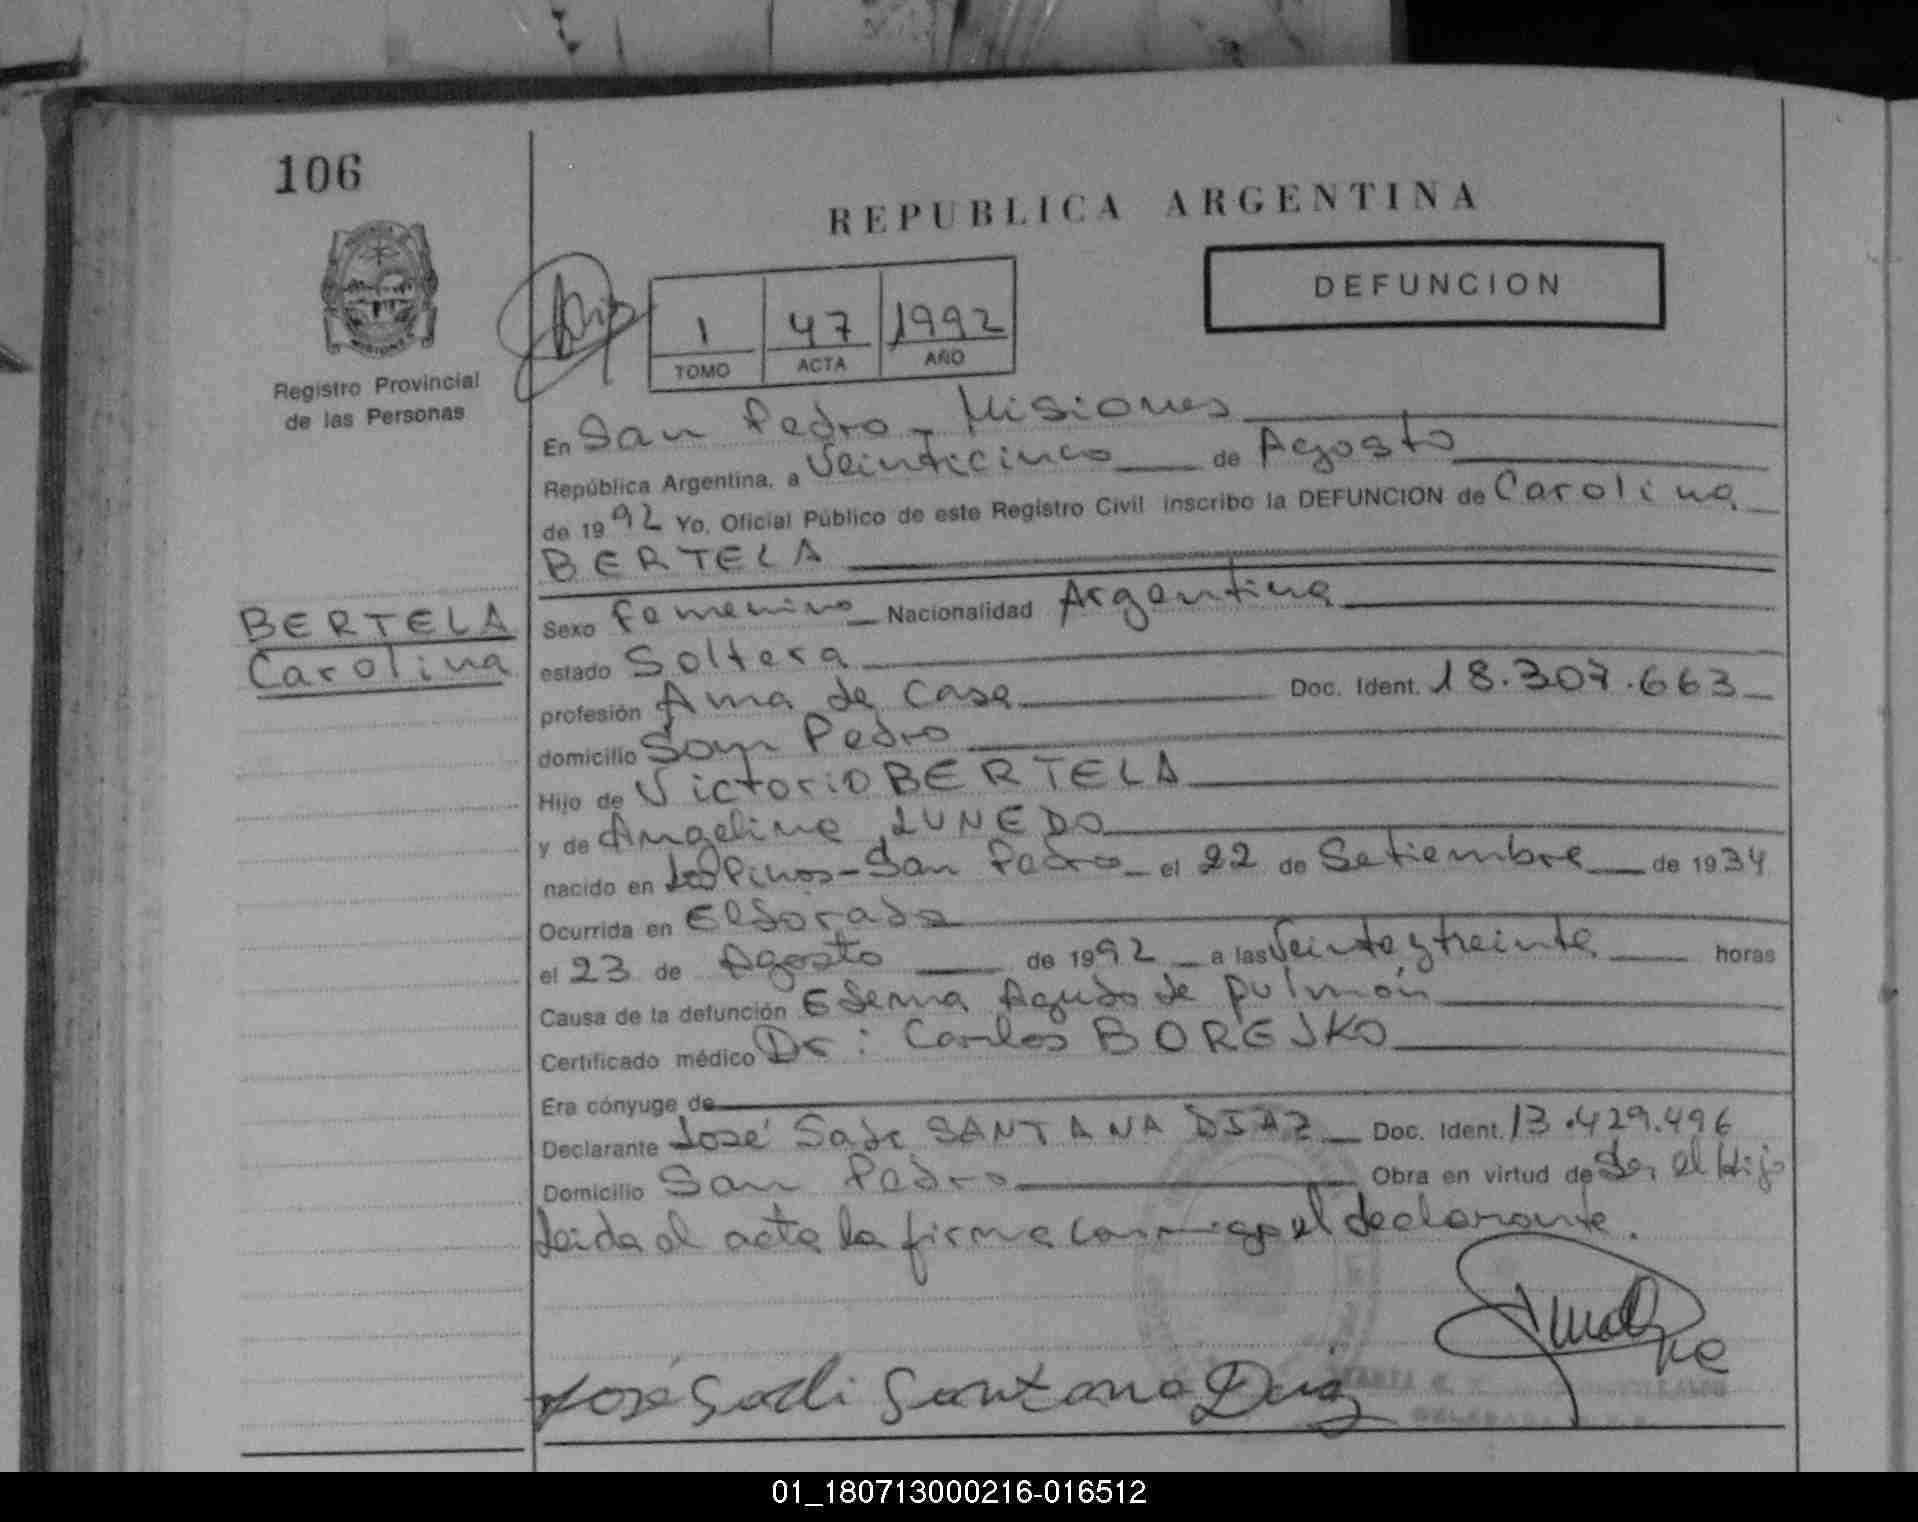 106
REPUBLICA ARGENTINA
DEFUNCION
1 47 1992
TOMO ACTA AÑO
Registro Provincial
de las Personas
En San Pedro - Misiones
República Argentina, a Veinticinco de Agosto
de 1992 Yo, Oficial Público de este Registro Civil inscribo la DEFUNCION de Carolina
BERTELA
BERTELA
Carolina
Sexo Femenino Nacionalidad Argentina
estado Soltera
profesión Ama de Casa Doc. Ident. 18.307.663
domicilio San Pedro
Hijo de Victorio BERTELA
y de Angelina LUNEDO
nacido en Los Pinos - San Pedro el 22 de Setiembre de 1934
Ocurrida en Eldorado
el 23 de Agosto de 1992 a las Veinte y treinta horas
Causa de la defunción Edema Agudo de pulmón
Certificado médico Dr: Carlos BOREJKO
Era cónyuge de
Declarante José Sadi SANTANA DIAZ Doc. Ident. 13.429.496
Domicilio San Pedro Obra en virtud de Ser el Hijo
Leida el acta la firma conmigo el declarante.
José Sadi Santana Diaz
01_180713000216-016512